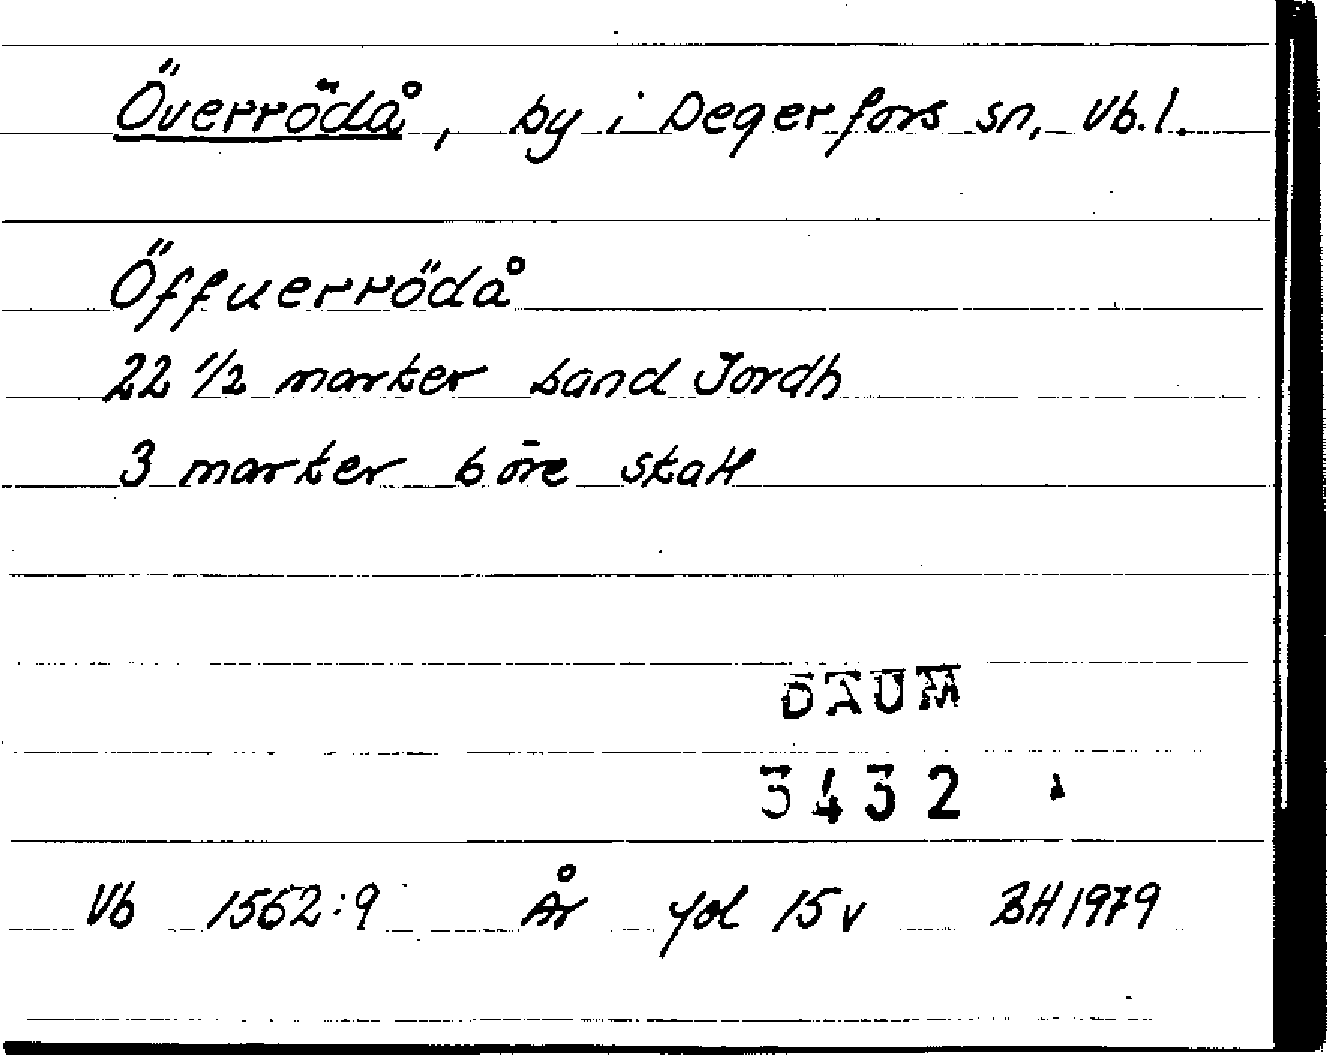 Överrödå, by i Degerfors sn, Vb.l.
Öffuerrödå
22 1/2 marker Land Jordh
3 marker 6 öre skatt
DAUM
3432
Vb 1562:9 År fol 15 v BH 1979